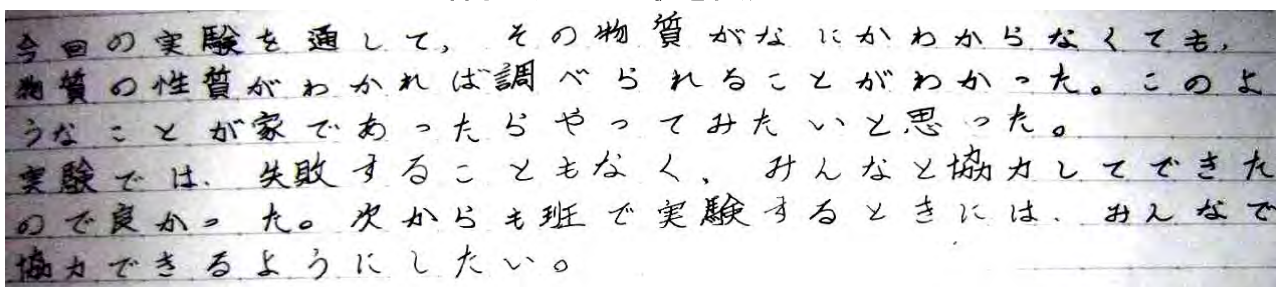 今回の実験を通して、その物質がなにかわからなくても、
物質の性質がわかれば調べられることがわかった。このよ
うなことが家であったらやってみたいと思った。
実験では、失敗することもなく、みんなと協力してできた
ので良かった。次からも班で実験するときには、みんなで
協力できるようにしたい。